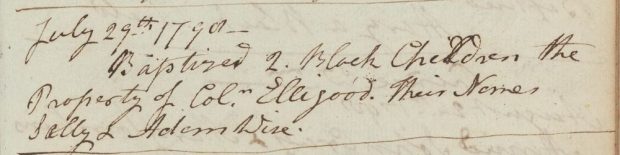 July 29th 1798 —
Baptized 2. Black Children the
Property of Coln Elligood. Their Names
Sally & Adam Wise.